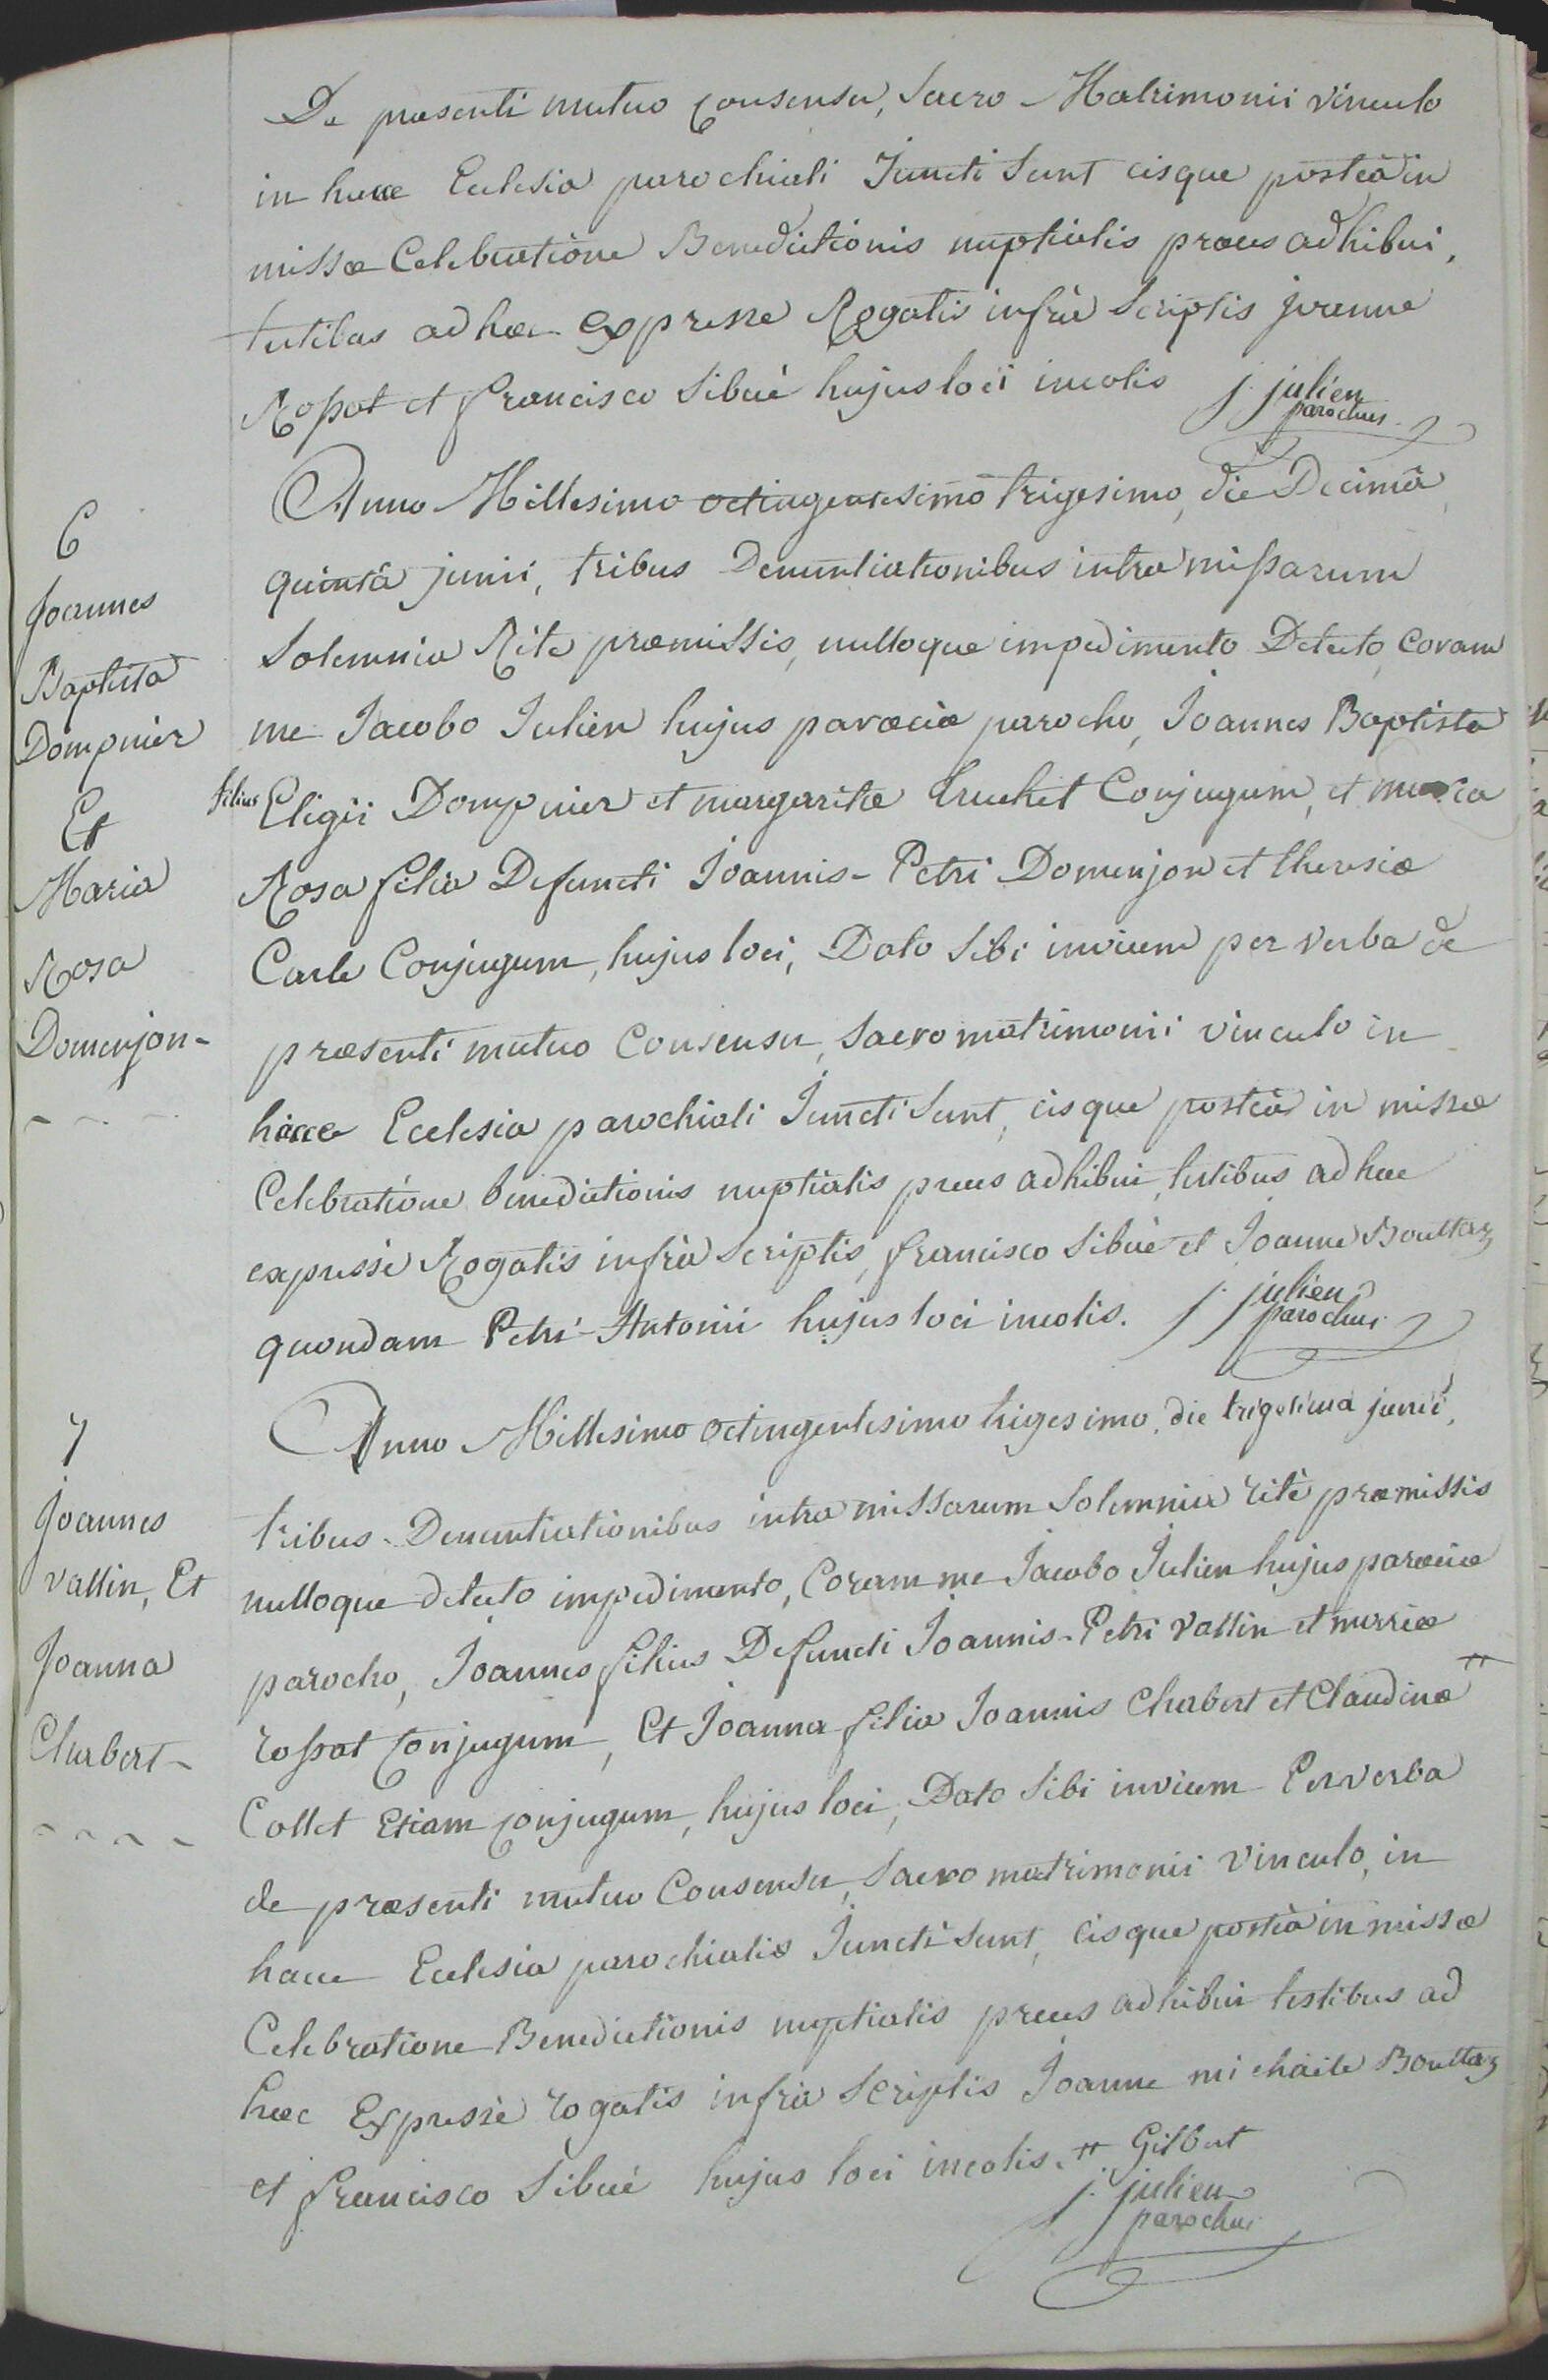 De præsenti mutuo consensu, sacro Matrimonii vinculo
in hacce Ecclesia parochiali Juncti sunt eisque posteà in
missæ Celebratione Benedictionis nuptialis preces adhibui,
testibus ad hæc expresse Rogatis infrà scriptis joanne
Rossat et francisco Sibué hujus loci incolis j. julien
parochus
6
Joannes
Baptista
Dompnier
Et
Maria
Rosa
Domenjon-
Anno Millesimo octingentesimo trigesimo, die Decimâ
quintâ junii, tribus Denuntiationibus intra missarum
Solemnia Rite præmissis, nulloque impedimento Detecto, coram
me Jacobo Julien hujus paræciæ parocho, Joannes Baptista
filius Eligii Dompnier et margaritæ truchet Conjugum, et maria
Rosa filia Defuncti Joannis-Petri Domenjon et theresiæ
Carle Conjugum, hujus loci, Dato sibi invicem per verba de
præsenti mutuo Consensu, sacro matrimonii vinculo in
hacce Ecclesia parochiali Juncti sunt, eisque posteà in missæ
Celebratione benedictionis nuptialis preces adhibui, testibus ad hæc
expressè Rogatis infrà scriptis, francisco Sibué et Joanne Bouttaz
quondam Petri-Antonii hujus loci incolis. j. julien
parochus
7
Joannes
vallin, Et
Joanna
Chabert-
Anno Millesimo octingentesimo trigesimo, die trigesima junii,
tribus Denuntiationibus intra missarum Solemnia ritè præmissis
nulloque detecto impedimento, Coram me Jacobo Julien hujus paræciæ
parocho, Joannes filius Defuncti Joannis-Petri vallin et mariæ
rossat Conjugum, Et Joanna filia Joannis Chabert et Claudinæ #
Collet Etiam conjugum, hujus loci, Dato sibi invicem Per verba
de præsenti mutuo Consensu, sacro matrimonii vinculo, in
hacce Ecclesia parochialis Juncti sunt, eisque posteà in missæ
Celebratione Benedictionis nuptialis preces adhibui testibus ad
hæc Expressè rogatis infrà scriptis Joanne michaële Bouttaz
et francisco Sibué hujus loci incolis. # Gilbert
j. julien
parochus